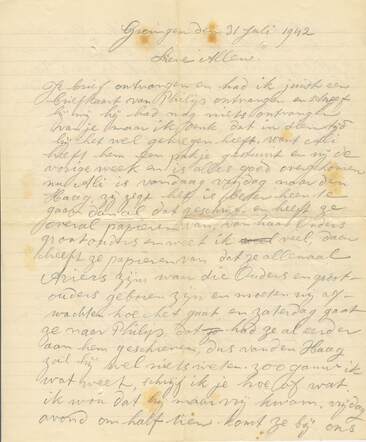 Groningen den 31 Juli 1942
Lieve Allen
Je brief ontvangen en had ik juist een
briefkaart van Philips ontvangen en schreef
hij mij hij had nog niets ontvangen
van je maar ik denk dat in dien tijd
hij het wel gekregen heeft, want Ali
heeft hem een pakje gestuurd en wij de
vorige week en is alles goed overgekomen
nu Ali is vandaag vrijdag naar den
Haag, zij zegt het is beter heen te
gaan dan al dat geschrijf, en heeft ze
overal papieren van, van haar Ouders
grootouders en weet ik veel daar
heeft ze papieren van dat ze allemaal
Ariers zijn van die Ouders en groot-
ouders geboren zijn en moeten wij af-
wachten hoe het gaat en zaterdag gaat
ze naar Philips dat had ze al eerder
aan hem geschreven, dus van den Haag
zal hij wel niets weten. zoo gauw ik
wat weet, schrijf ik je hoe of wat
ik wou dat hij maar vrij kwam. vrijdag
avond om half tien komt ze bij ons